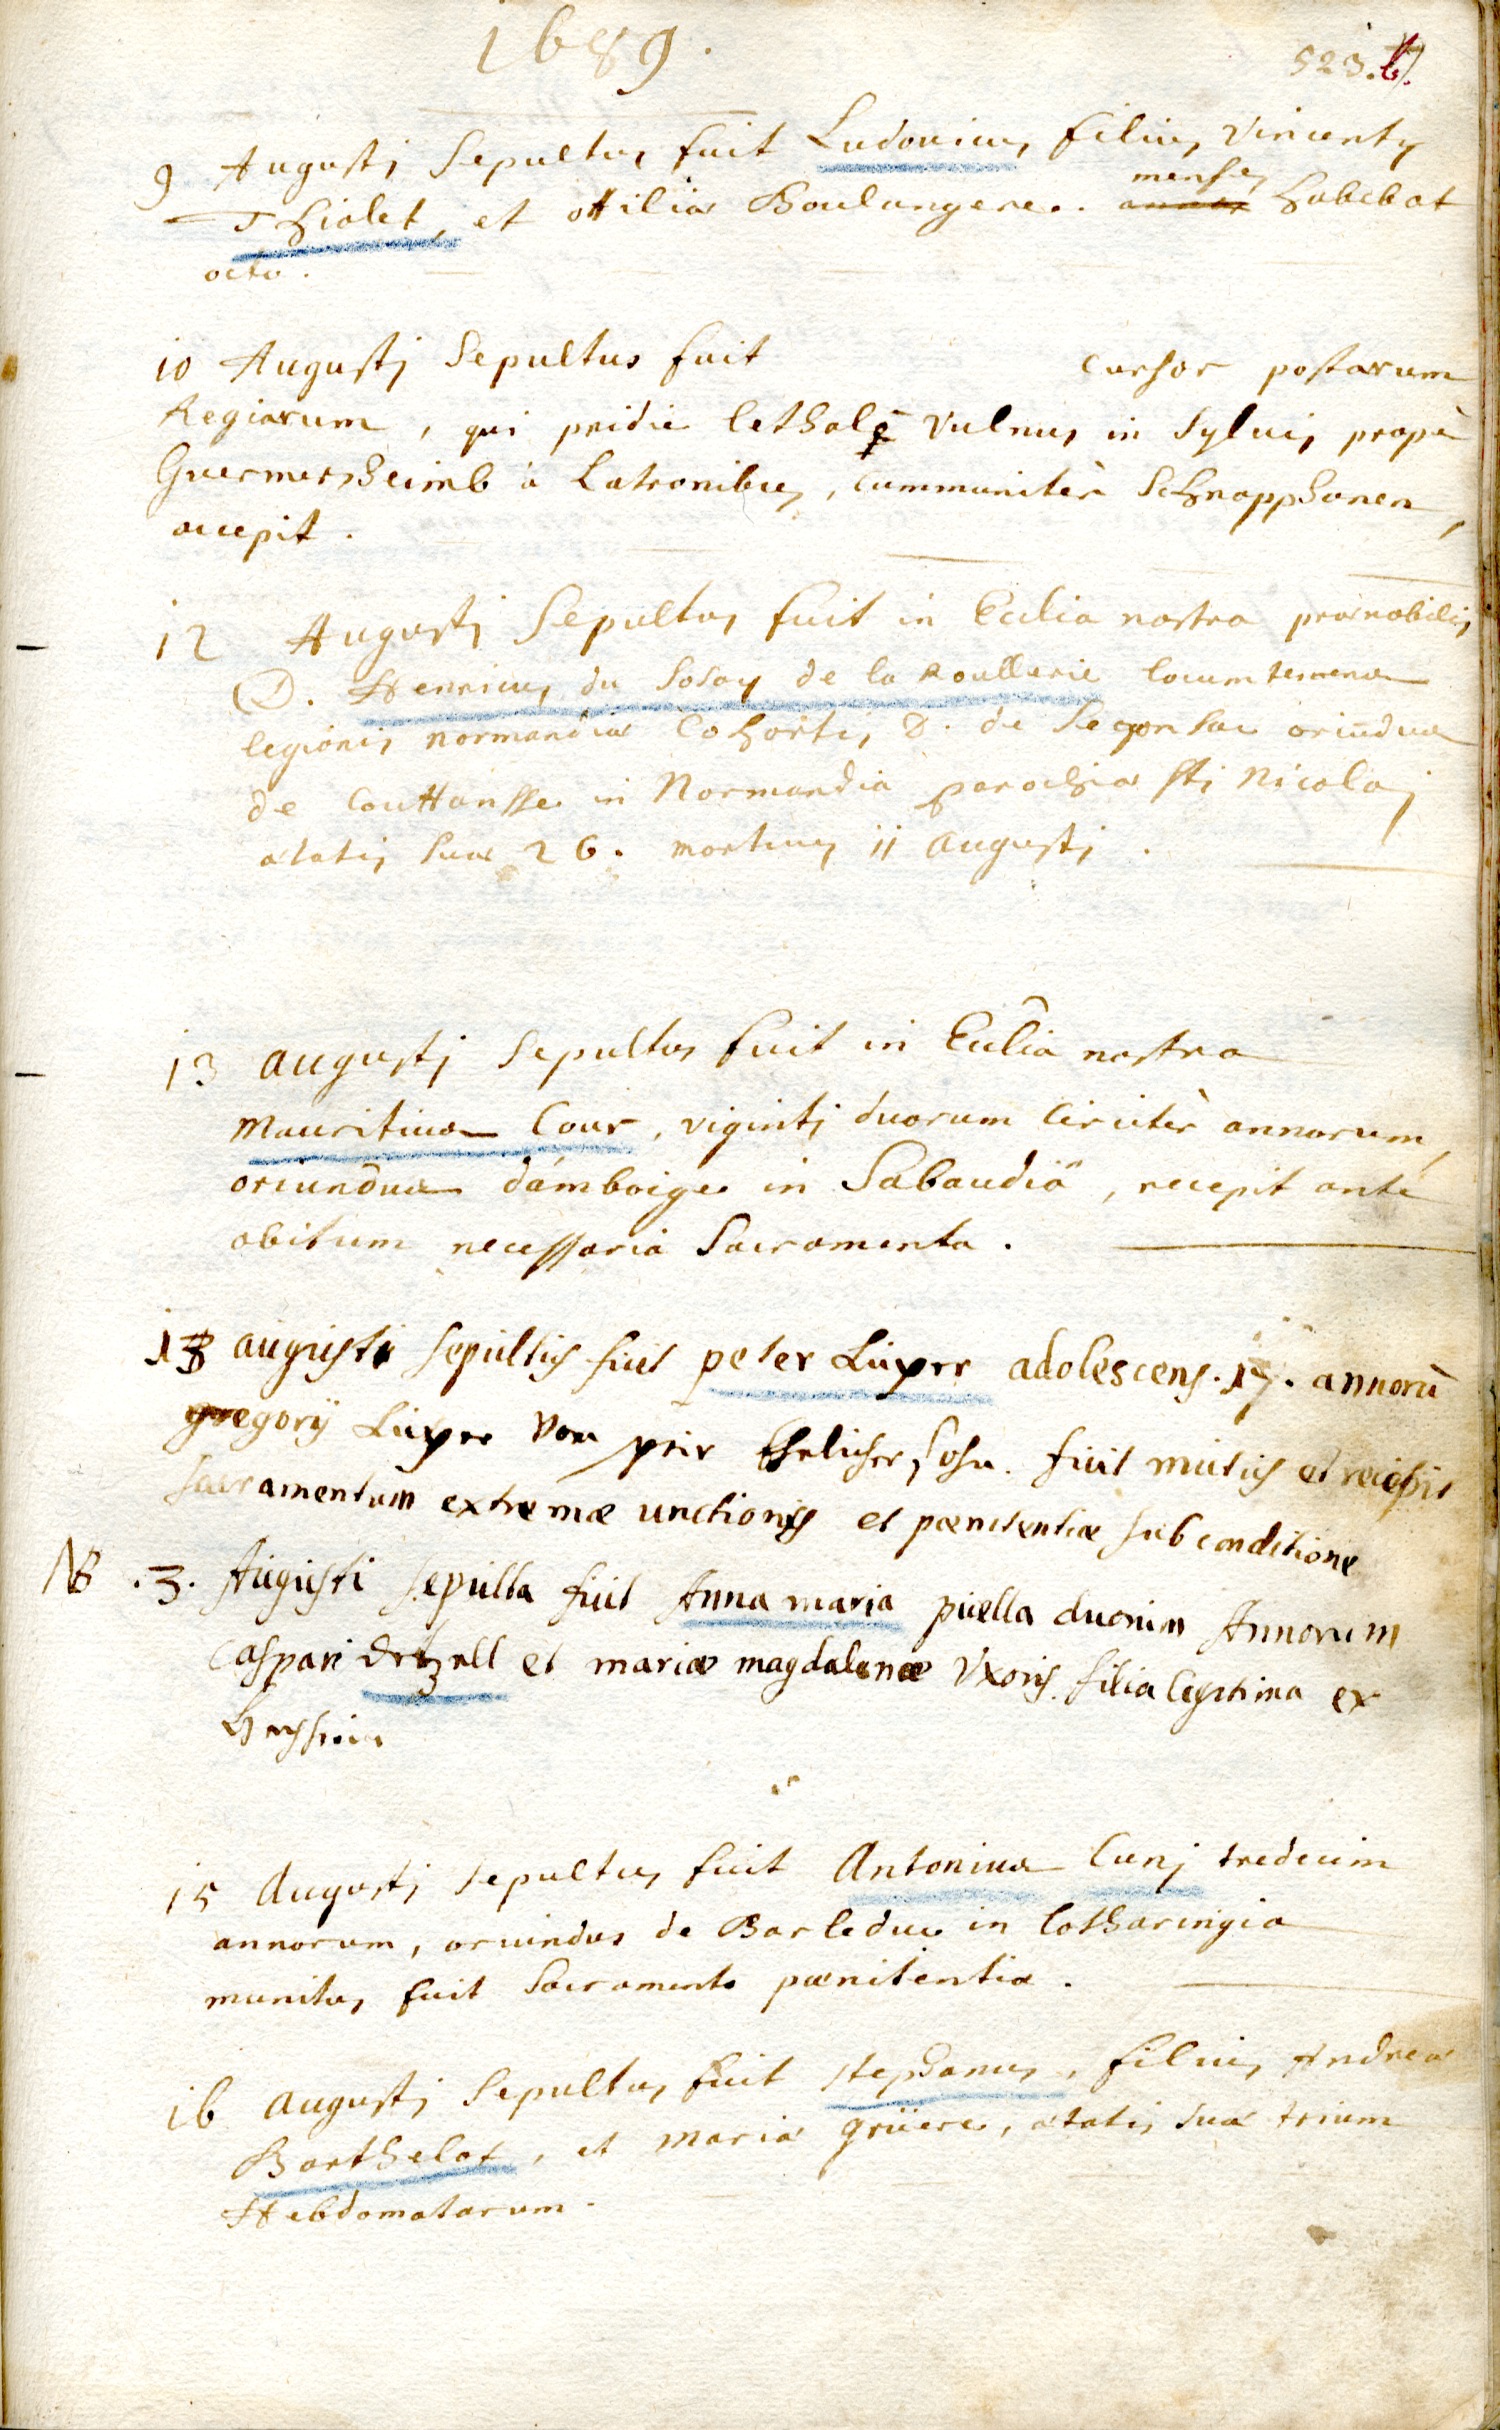 1689.
523.
9 Augustj Sepultus fuit Ludovicus filius Vincentij
menses
Thiolet, et ottiliæ Boulangere. annos habebat
octo.
10 Augustj Sepultus fuit cursor postarum
Regiarum, qui pridie lethale vulnus in sylvis propè
Guermersheimb à Latronibus, communiter Schnapphanen,
accepit.
12 Augustj Sepultus fuit in Ecclia nostra prænobilis
D. Henricus du Solay de la Roullerie locumtenens
legionis normandiæ Cohortis D. de Segonsac oriundus
de Couttansse in Normandia parochia Sti Nicolaj
ætatis suæ 26. mortuus 11 augustj.
13 augustj Sepultus fuit in Ecclia nostra
Mauritius Cour, vigintj duorum circitèr annorum,
oriundus d'amboige in Sabaudiâ, recepit ante
obitum necessaria Sacramenta.
13 augusti sepultus fuit peter Luxer adolescens. 17. annorũ
gregorÿ Luxer von Ehrlicher Sohn. fuit mutus et recepit
sacramentum extremæ unctionis et pœnitentiæ sub conditione
NB .3. Augusti sepulta fuit Anna maria puella duorum Annorum
Caspari Drtzell et mariæ magdalenæ Vxoris filia legitima ex
Hassia
15 Augustj sepultus fuit Antonius Cunj tredecim
annorum, oriundus de Barleduc in Lotharingia
munitus fuit Sacramento pœnitentiæ.
16 augustj Sepultus fuit stephanus, filius Andreæ
Barthelot, et Mariæ grüere, ætatis suæ trium
Hebdomatarum.